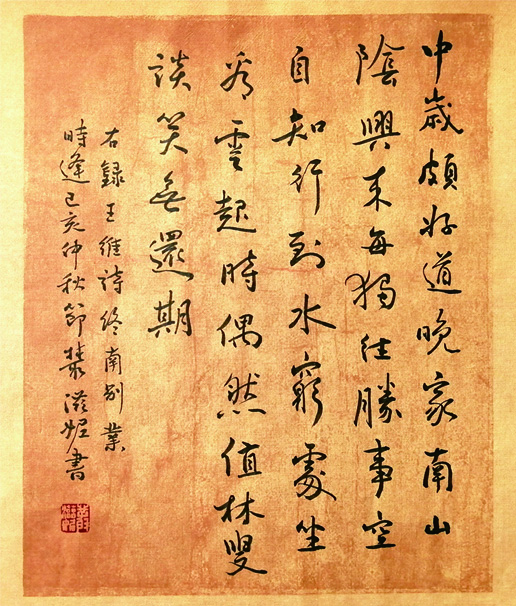 中歲頗好道晚家南山
陰興來每獨往勝事空
自知行到水窮處坐
看雲起時偶然值林叟
談笑無還期
右錄王維詩終南別業
時逢己亥仲秋節葉滋書